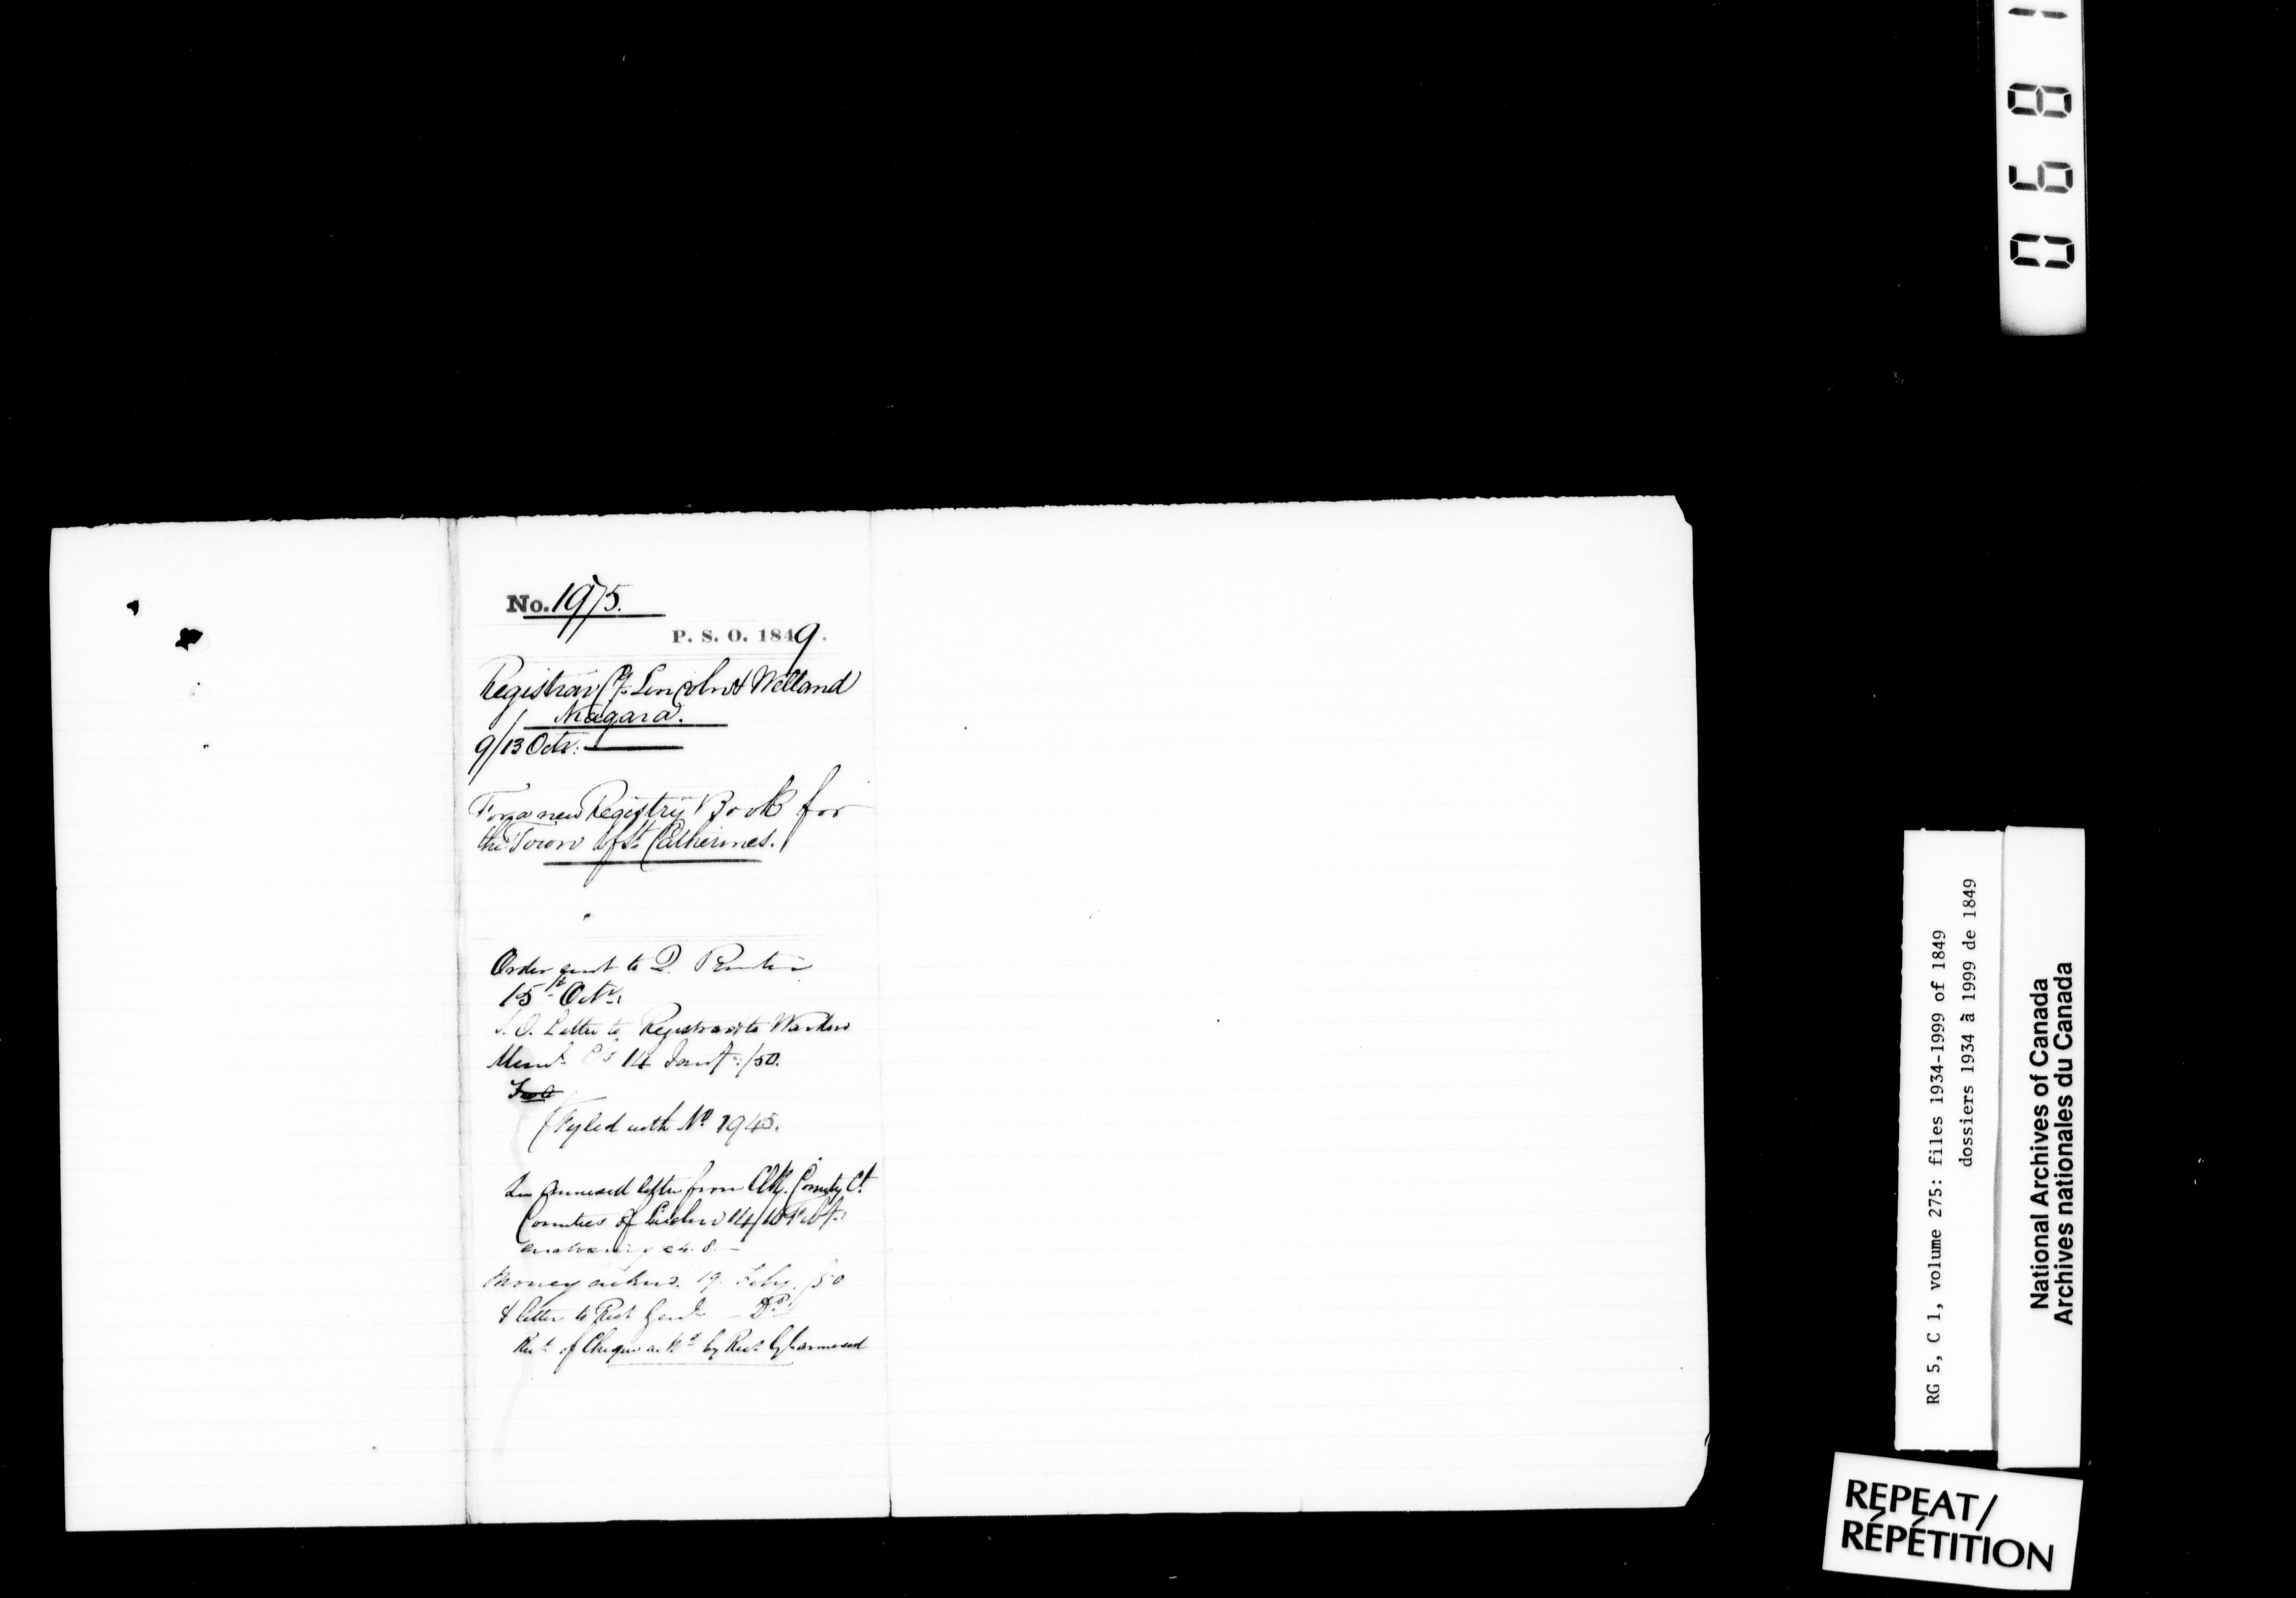 No. 1975.
P. S. O. 1849.
Registrar Cy. Lincoln & Welland
Niagara.
9/13 Octr:
For a new Registry Book for
the Town of St. Catherines.
Order sent to Q. Printer
15th Octr:
Letter to Registrar & to Warden
14 Jany: /50.
Fyled with No 1945.
See annexed letter from Clk. County Ct.
Counties of Lincoln 14/18
Money 19 Feby. /50
& letter to Rect Genl Do
Rect of Cheque by Rect Gl annexed
0681
RG 5, C 1, volume 275: files 1934-1999 of 1849
dossiers 1934 à 1999 de 1849
National Archives of Canada
Archives nationales du Canada
REPEAT/
RÉPÉTITION